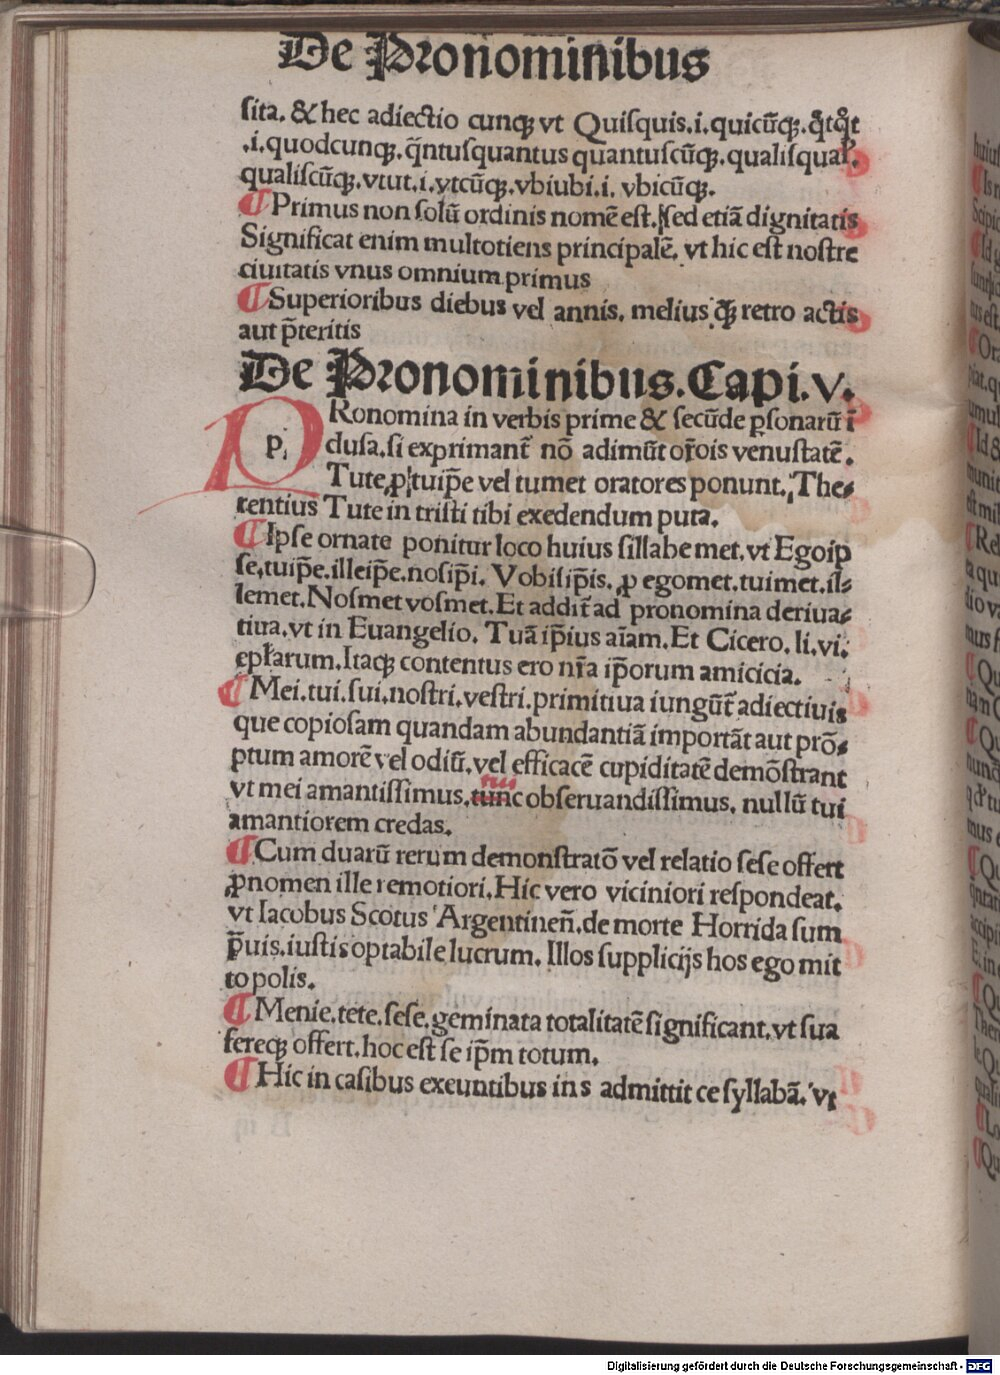 De Pronominibus
ſita. & hec adiectio cunqꝫ vt Quiſquis.i.quicūqꝫ.
.i.quodcunqꝫ.q̄ntuſquantus quantuſcūqꝫ.qualiſqual'.
qualiſcūqꝫ.vtut.i.vtcūqꝫ.vbiubi.i. vbicūqꝫ.
¶Primus non ſolū ordinis nomē eſt.ſed etiā dignitatis
Significat enim multotiens principalē. vt hic eſt noſtre
ciuitatis vnus omnium primus
¶Superioribus diebus vel annis. melius q̄ꝫ retro actis
aut p̄teritis
De Pronominibus.Capi.v.
PRonomina in verbis prime & ſecūde ꝑſonarū ī
p.
duſa.ſi exprimant̄ nō adimūt or̄ois venuſtatē.
Tute.ꝓ tuip̄e vel tumet oratores ponunt. The⸗
rentius Tute in triſti tibi exedendum puta.
¶Ipſe ornate ponitur loco huius ſillabe met.vt Egoip
ſe.tuip̄e.illeip̄e.noſip̄i. Vobiſip̄is. ꝓ egomet.tuimet.il⸗
lemet.Noſmet voſmet.Et addit̄ ad pronomina deriua⸗
tiua.vt in Euangelio. Tuā ip̄ius aīam.Et Cicero. li.vi.
epl'arum.Itaqꝫ contentus ero nr̄a ip̄orum amicicia.
¶Mei.tui.ſui.noſtri.veſtri.primitiua iungūt̄ adiectiuis
que copioſam quandam abundantiā importāt aut prō⸗
ptum amorē vel odiū.vel efficacē cupiditatē demōſtrant
tui
vt mei amantiſſimus.tunc obſeruandiſſimus. nullū tui
amantiorem credas.
¶Cum duarū rerum demonſtratō vel relatio ſeſe offert
ꝓnomen ille remotiori.Hic vero viciniori reſpondeat.
vt Iacobus Scotus Argentineñ.de morte Horrida ſum
p̄uis.iuſtis optabile lucrum. Illos ſupplicijs hos ego mit
to polis.
¶Menie.tete.ſeſe.geminata totalitatē ſignificant.vt ſua
fereqꝫ offert.hoc eſt ſe ip̄m totum.
¶Hic in caſibus exeuntibus in s admittit ce ſyllabā. vt
Digitalisierung gefördert durch die Deutsche Forschungsgemeinschaft - DFG